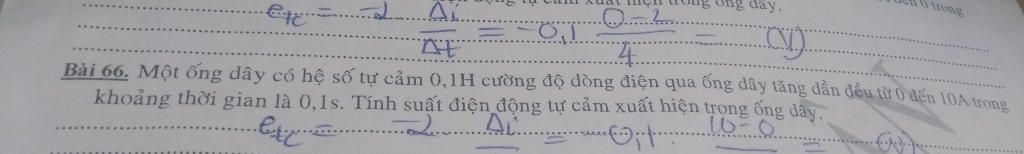 trong ống dây.
e_tc = -2 Δi/Δt = -0,1 (0-2)/4 = (V)
Bài 66. Một ống dây có hệ số tự cảm 0,1H cường độ dòng điện qua ống dây tăng dần đều từ 0 đến 10A trong
khoảng thời gian là 0,1s. Tính suất điện động tự cảm xuất hiện trong ống dây.
e_tc = -2 Δi = -0,1. 10-0 =